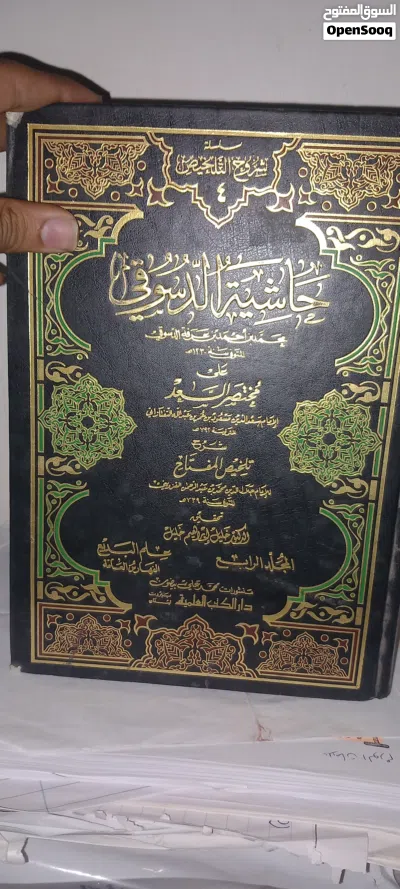 السوق المفتوح
OpenSooq
سلسلة
شروح التلخيص
٤
حاشية الدسوقي
محمد بن أحمد بن عرفة الدسوقي
المتوفى سنة ١٢٣٠هـ
على
مختصر السعد
شرح
تلخيص المفتاح
تحقيق
الدكتور خليل إبراهيم خليل
المجلد الرابع
علم البديع
الفهارس العامة
منشورات محمد علي بيضون
دار الكتب العلمية